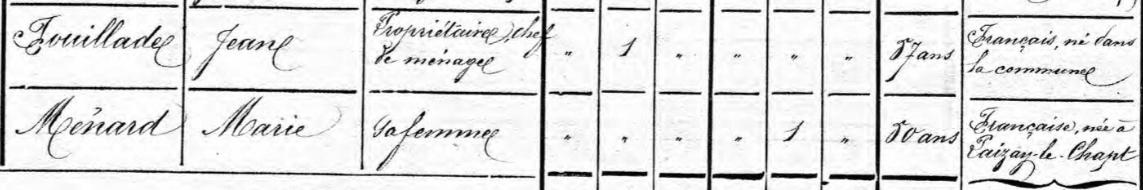 Fouillade Jean Propriétaire, chef de ménage " 1 " " " " 57 ans Français, né dans la commune
Ménard Marie Sa femme " " " " 1 " 50 ans Française, née à Paizay-le-Chapt